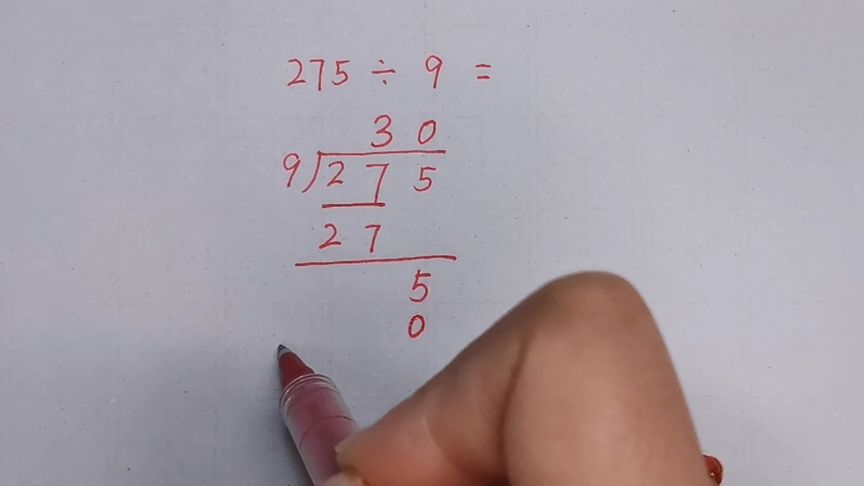 275 ÷ 9 =
30
9)275
27
5
0